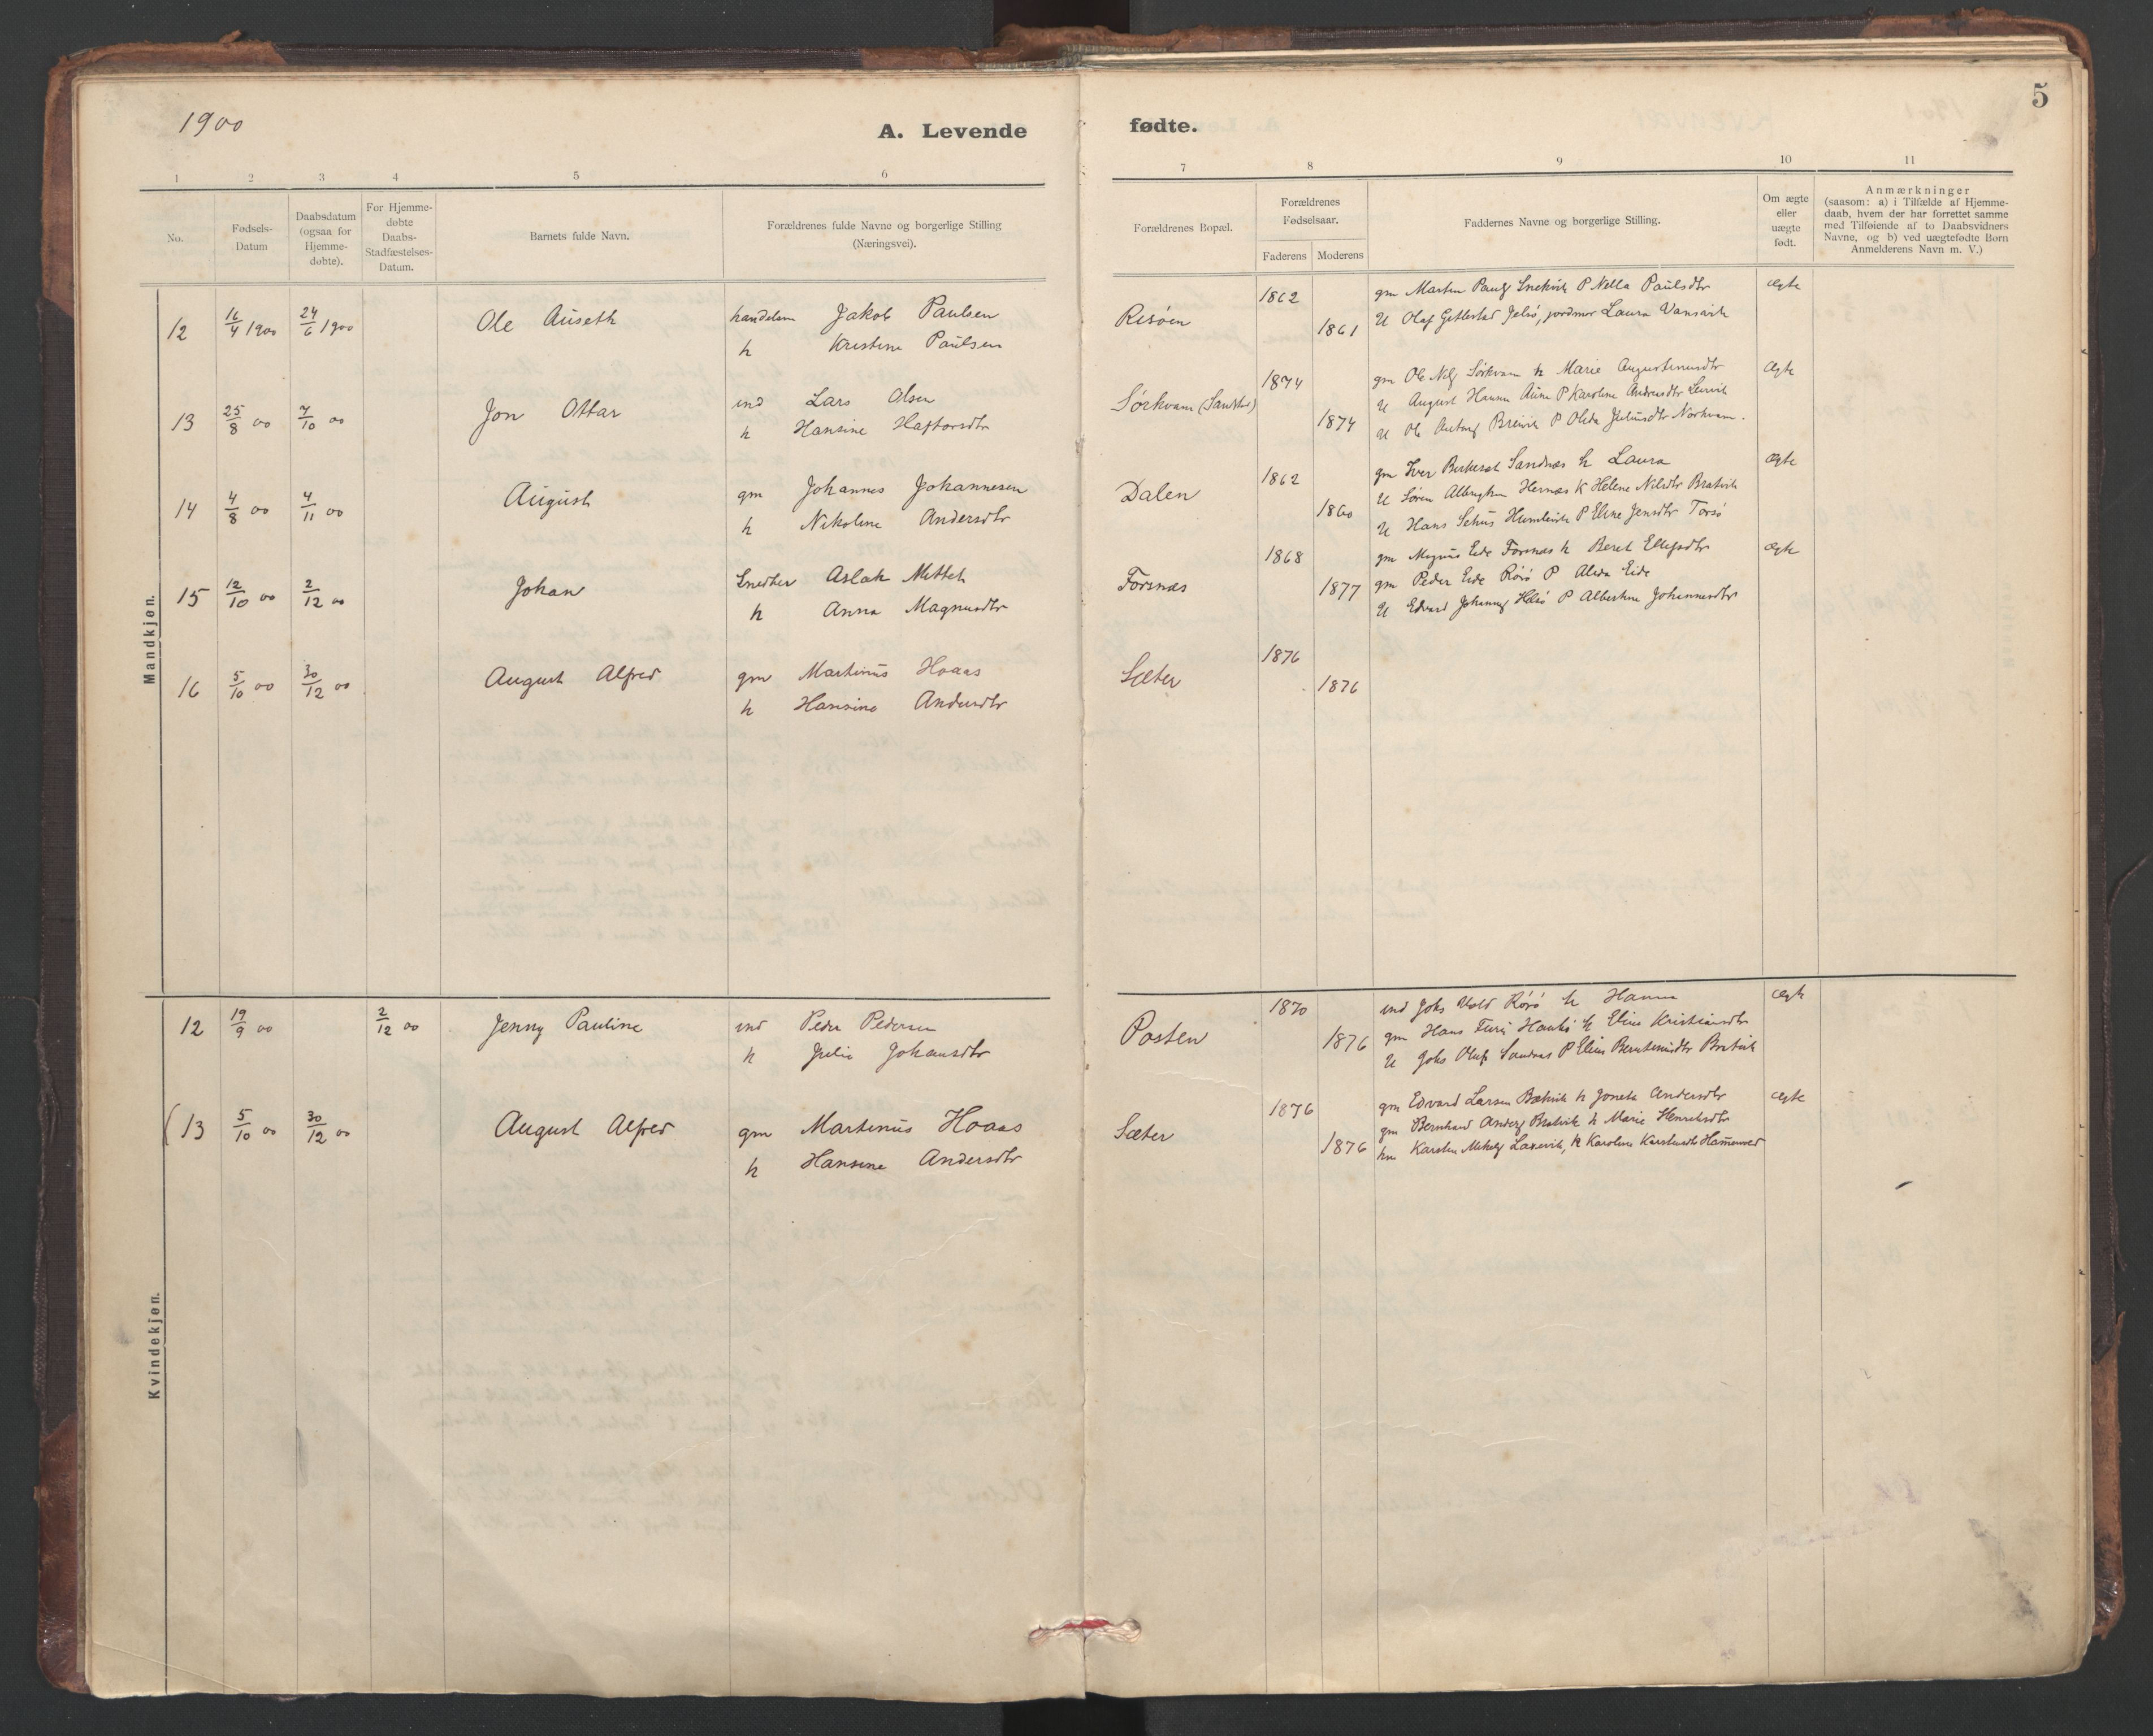 1900
A. Levende fødte.
5
1 2 3 4 5 6 7 8 9 10 11
No.
Fødsels-
Datum
Daabsdatum
(ogsaa for
Hjemme-
døbte).
For Hjemme-
døbte
Daabs-
Stadfæstelses-
Datum.
Barnets fulde Navn.
Forældrenes fulde Navne og borgerlige Stilling
(Næringsvei).
Forældrenes Bopæl.
Forældrenes
Fødselsaar.
Faderens Moderens
Faddernes Navne og borgerlige Stilling.
Om ægte
eller
uægte
født.
Anmærkninger
(saasom: a) i Tilfælde af Hjemme-
daab, hvem der har forrettet samme
med Tilføiende af to Daabsvidners
Navne, og b) ved uægtefødte Børn
Anmelderens Navn m. V.)
Mandkjøn.
12 16/4 1900 24/6 1900 Ole Auseth handelsm Jakob Paulsen Risöen 1862 gm Martin Paulsen P Nella Paulsdtr ægte
h Kristine Paulsen 1861 U Olaf Gittestad Jelsö, jordmor Laura Vansvik
13 25/8 00 7/10 00 Jon Ottar ind Lars Olsen Sörkvam (Sandstad) 1874 gm Ole Nils Sörkvam h Marie Augustinusdtr ægte
h Hansine Haftorsdtr 1874 U August Hansen Aune P Karoline Andreasdtr Lervik
U Ole Antons Breivik P Oleda Juliusdtr Norkvam.
14 4/8 00 4/11 00 August gm Johannes Johannesen Dalen 1862 gm Iver Berkesæt Sandnæs h Laura ægte
h Nikoline Andersdtr 1860 U Sören Albrigtsen Hernæs K Helene Nilsdtr Bratvik
U Hans Sehus Humlevik P Eline Jensdtr Torsö
15 12/10 00 2/12 00 Johan Snedker Aslak Mittet Forsnæs 1868 gm Magnus Eide Forsnæs h Beret Ellefsdtr ægte
h Anna Magnusdtr 1877 gm Peder Eide Rörö P Alida Eide
U Edvard Johannes Helsö P Albertine Johannesdtr
16 5/10 00 30/12 00 August Alfred gm Martinus Hoaas Sæter 1876
h Hansine Andersdtr 1876
Kvindekjøn.
12 19/9 00 2/12 00 Jenny Pauline ind Peder Pedersen Posten 1870 ind Johs Vold Rörö h Hanna ægte
h Julie Johansdtr 1876 gm Hans Turi h Eline Kristiansdtr
U Johs Olufs Sandnæs P Eline Berntinusdtr Bratvik
(13 5/10 00 30/12 00 August Alfred gm Martinus Hoaas Sæter 1876 gm Edvard Larsen Bækvik h Joneta Andersdtr ægte
h Hansine Andersdtr 1876 gm Bernhard Anders Bratvik h Marie Henriksdtr
hm Karsten Mikals Laxevik, h Karoline Karstensdtr Hammervold